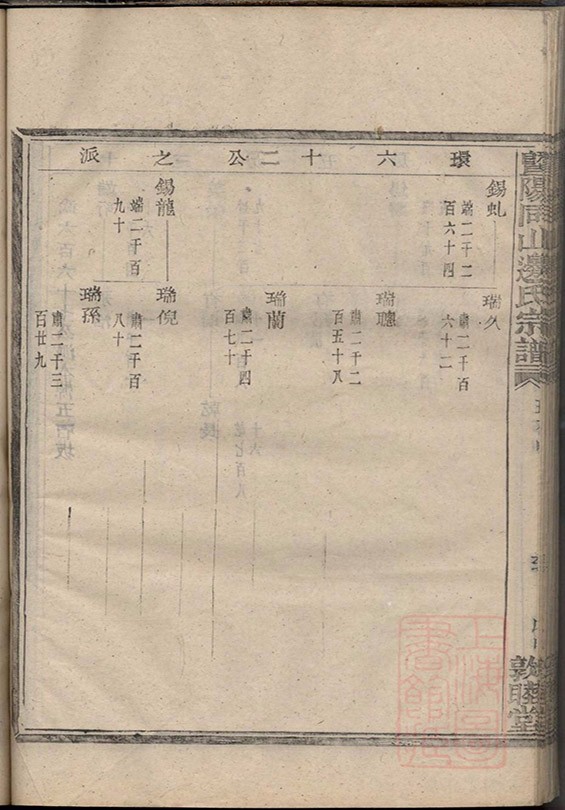 暨陽同山邊氏宗譜
敦睦堂
環六十二公之派
錫虬
端二千二
百六十四
瑞久
肅二千百
六十二
瑞聰
肅二千二
百五十八
瑞蘭
肅二千四
百七十
錫龍
端二千百
九十
瑞倪
肅二千百
八十
瑞孫
肅二千三
百廿九
上海圖書館藏